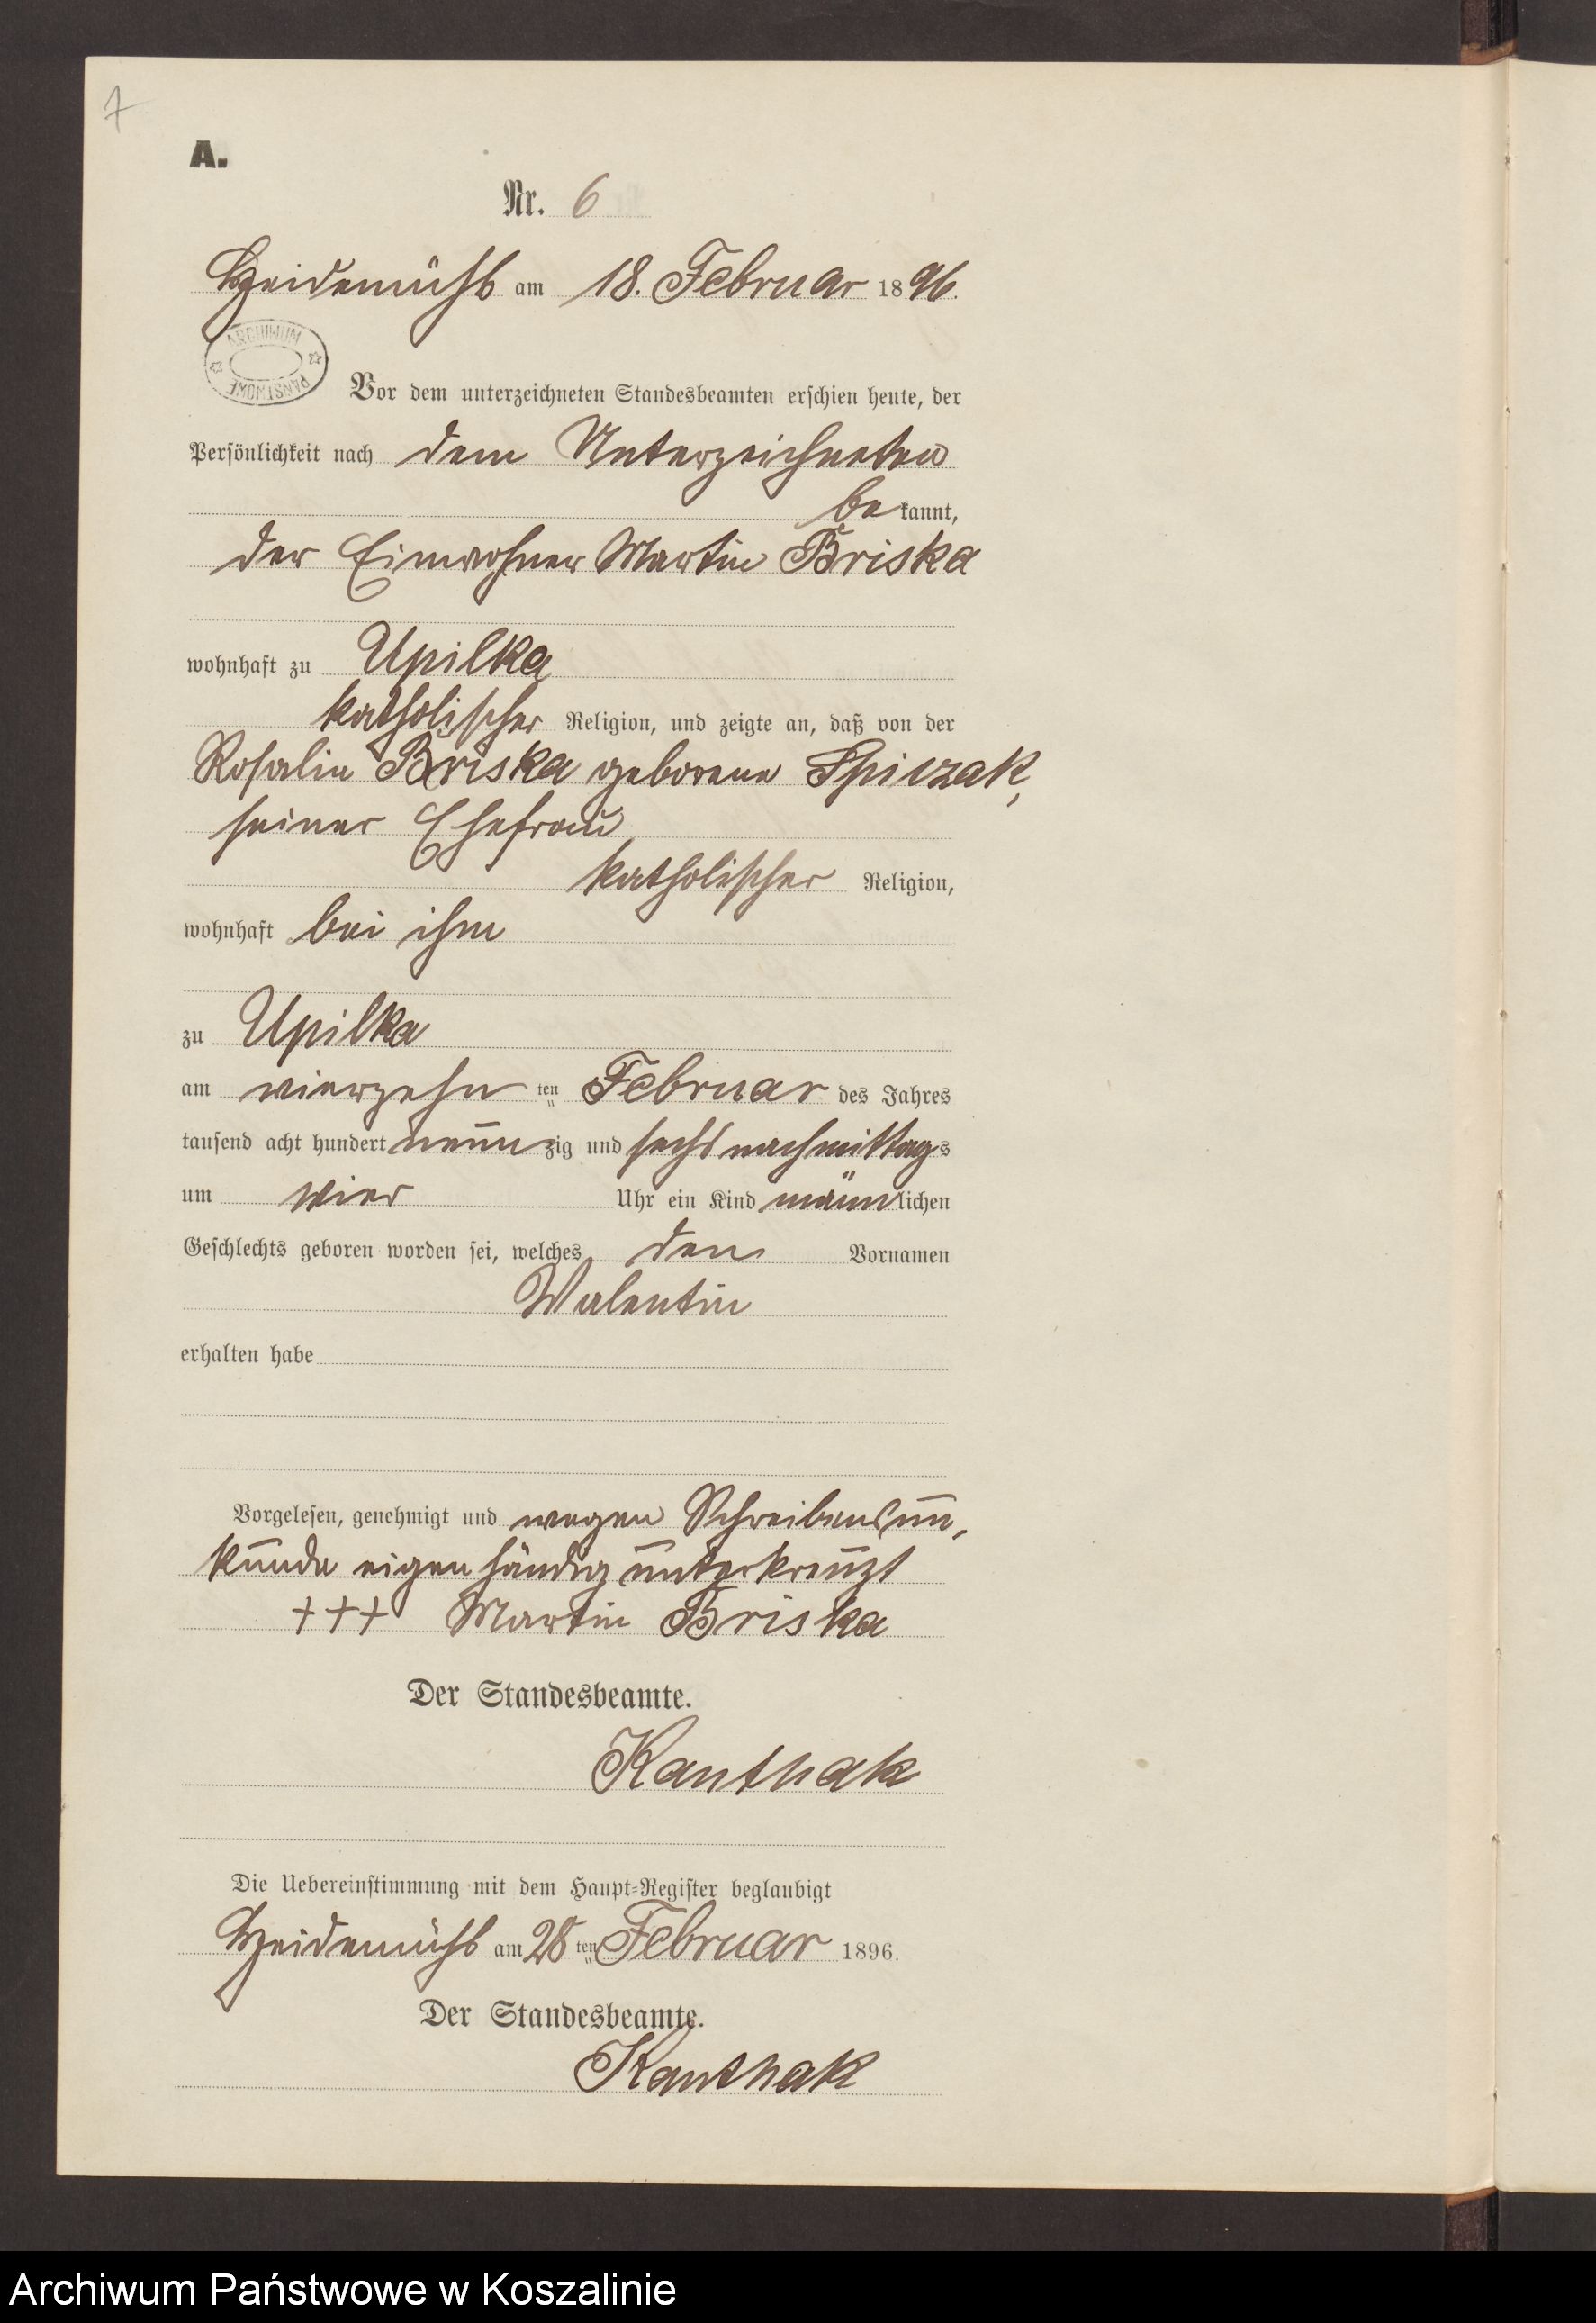 7
A.
Nr. 6
Heidemühl am 18. Februar 1896.
ARCHIWUM PAŃSTWOWE
Vor dem unterzeichneten Standesbeamten erschien heute, der
Persönlichkeit nach dem Unterzeichneten
bekannt,
der Einwohner Martin Briska
wohnhaft zu Upilka
katholischer Religion, und zeigte an, daß von der
Rosalie Briska geborene Spiczak,
seiner Ehefrau
katholischer Religion,
wohnhaft bei ihm
zu Upilka
am vierzehn ten Februar des Jahres
tausend acht hundert neunzig und sechs nachmittags
um vier Uhr ein Kind männlichen
Geschlechts geboren worden sei, welches den Vornamen
Valentin
erhalten habe
Vorgelesen, genehmigt und wegen Schreibensun,
kunde eigenhändig unterkreuzt
+++ Martin Briska
Der Standesbeamte.
Kanthak
Die Uebereinstimmung mit dem Haupt=Register beglaubigt
Heidemühl am 28 ten Februar 1896.
Der Standesbeamte.
Kanthak
Archiwum Państwowe w Koszalinie